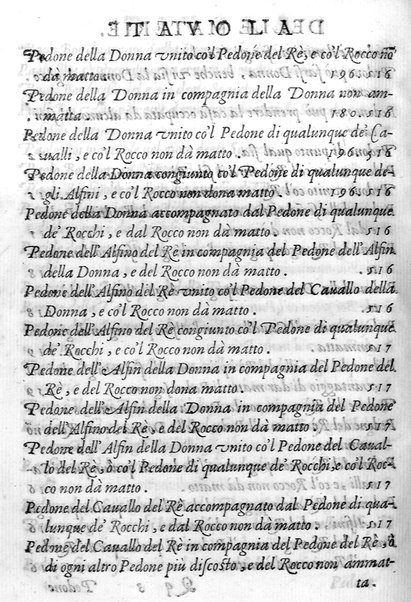 Pedone della Donna vnito co'l Pedone del Rè, e co'l Rocco nõ
dà matto.
Pedone della Donna in compagnia della Donna non am-
matta.
Pedone della Donna vnito co'l Pedone di qualunque de' Ca-
ualli, e co'l Rocco nõ dà matto.
Pedone della Donna congiunto co'l Pedone di qualunque de-
gli Alfini, e co'l Rocco non dona matto.
Pedone della Donna accompagnato dal Pedone di qualunque
de' Rocchi, e dal Rocco non dà matto. 516
Pedone dell'Alfino del Rè in compagnia del Pedone dell'Alfin.
della Donna, e del Rocco non dà matto. 516
Pedone dell'Alfino del Rè vnito co'l Pedone del Cauallo della
Donna, e co'l Rocco non dà matto. 516
Pedone dell'Alfino del Rè congiunto co'l Pedone di qualunque
de' Rocchi, e co'l Rocco non dà matto. 517
Pedone dell'Alfin della Donna in compagnia del Pedone del
Rè, e del Rocco non dona matto. 517
Pedone dell'Alfin della Donna in compagnia del Pedone
dell'Alfino del Rè, e del Rocco non dà matto. 517
Pedone dell'Alfin della Donna vnito co'l Pedone del Caual-
lo del Rè, ò co'l Pedone di qualunque de' Rocchi, e co'l Roc-
co non dà matto. 517
Pedone del Cauallo del Rè accompagnato dal Pedone di qua-
lunque de' Rocchi, e dal Rocco non dà matto. 517
Pedone del Cauallo del Rè in compagnia del Pedone del Rè, ò
di ogni altro Pedone più discosto, e del Rocco non ammat-
ta.